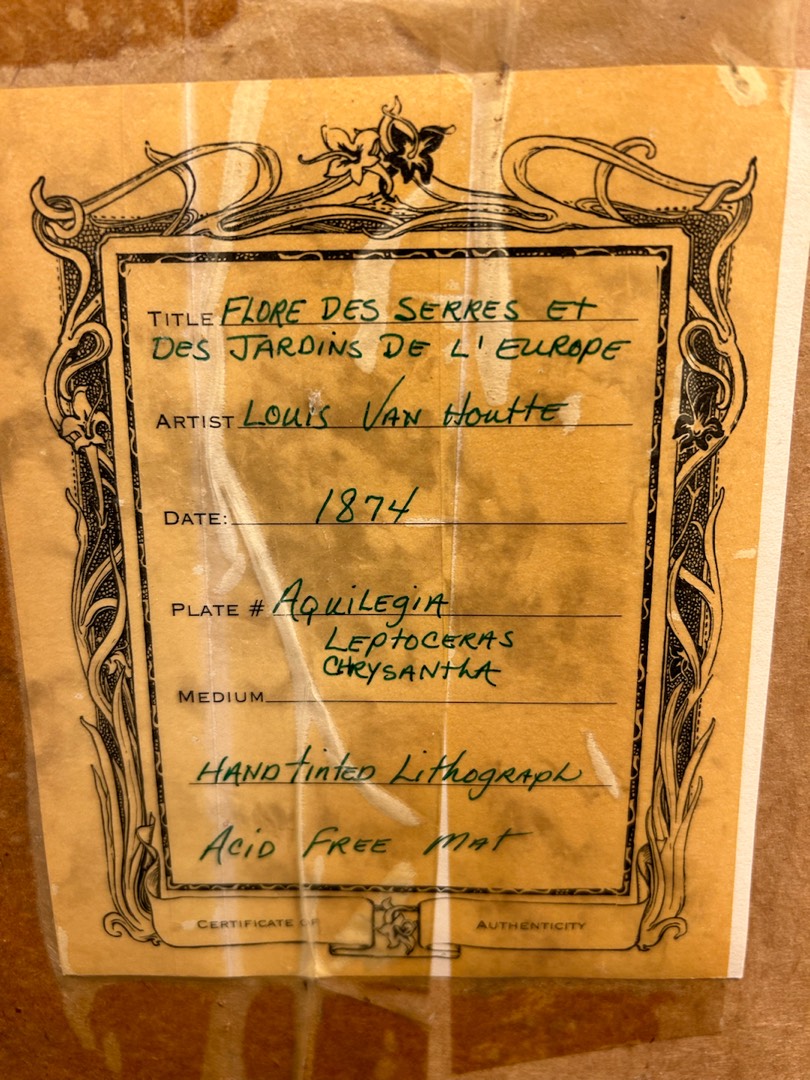 TITLE FLORE DES SERRES ET
DES JARDINS DE L'EUROPE
ARTIST LOUIS VAN HOUTTE
DATE: 1874
PLATE # AQUILEGIA
LEPTOCERAS
CHRYSANTHA
MEDIUM
HAND tinted Lithograph
ACID FREE MAT
CERTIFICATE OF AUTHENTICITY